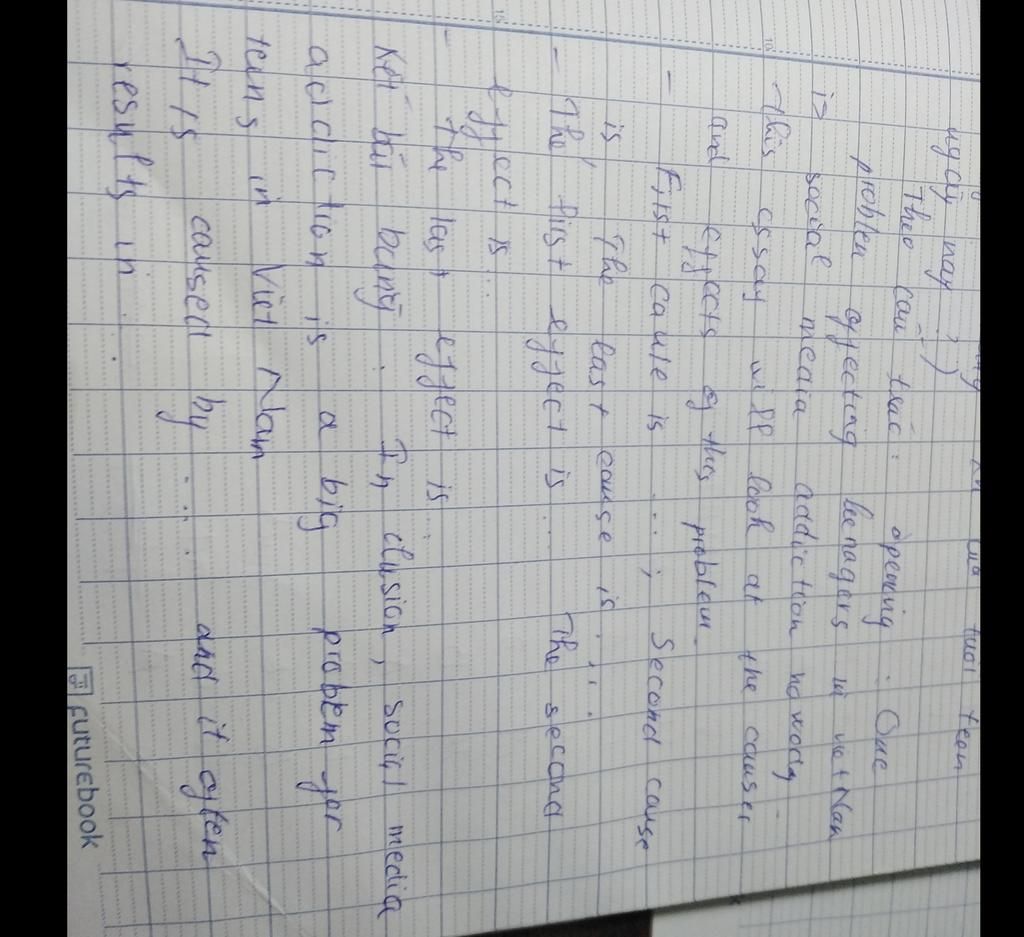 tuổi teen
ngày nay ?)
Theo cấu trúc : opening : One
problem effecting teenagers in Việt Nam
is social media addiction nowaday
this essay will look at the causes
and effects of this problem.
- First cause is ... ; Second cause
is The last cause is ...
- The first effect is ... The second
effect is ...
- The last effect is ...
Kết bài bằng : In clusion, social media
addiction is a big problem for
teens in Việt Nam
It is caused by ... and it often
results in ...
futurebook